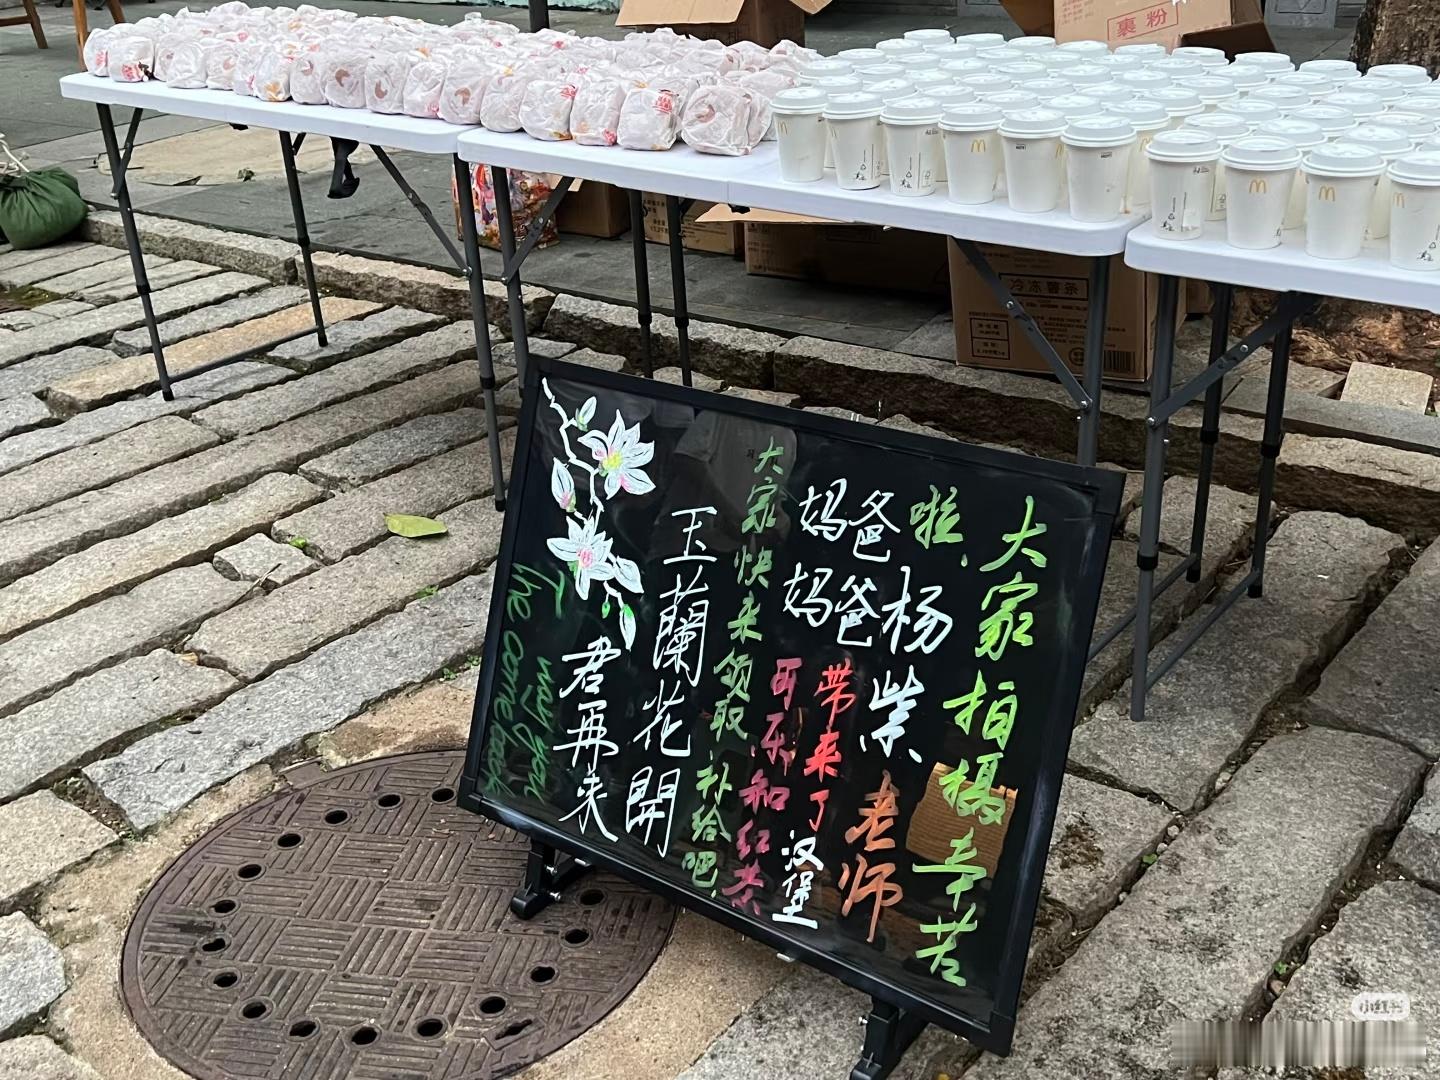 裹粉
冷冻薯条
大家拍摄辛苦
啦、杨紫老师
爸爸
妈妈
带来了汉堡
可乐和红茶
大家快来领取补给吧
玉蘭花開
君再来
way you
The come back
小红书